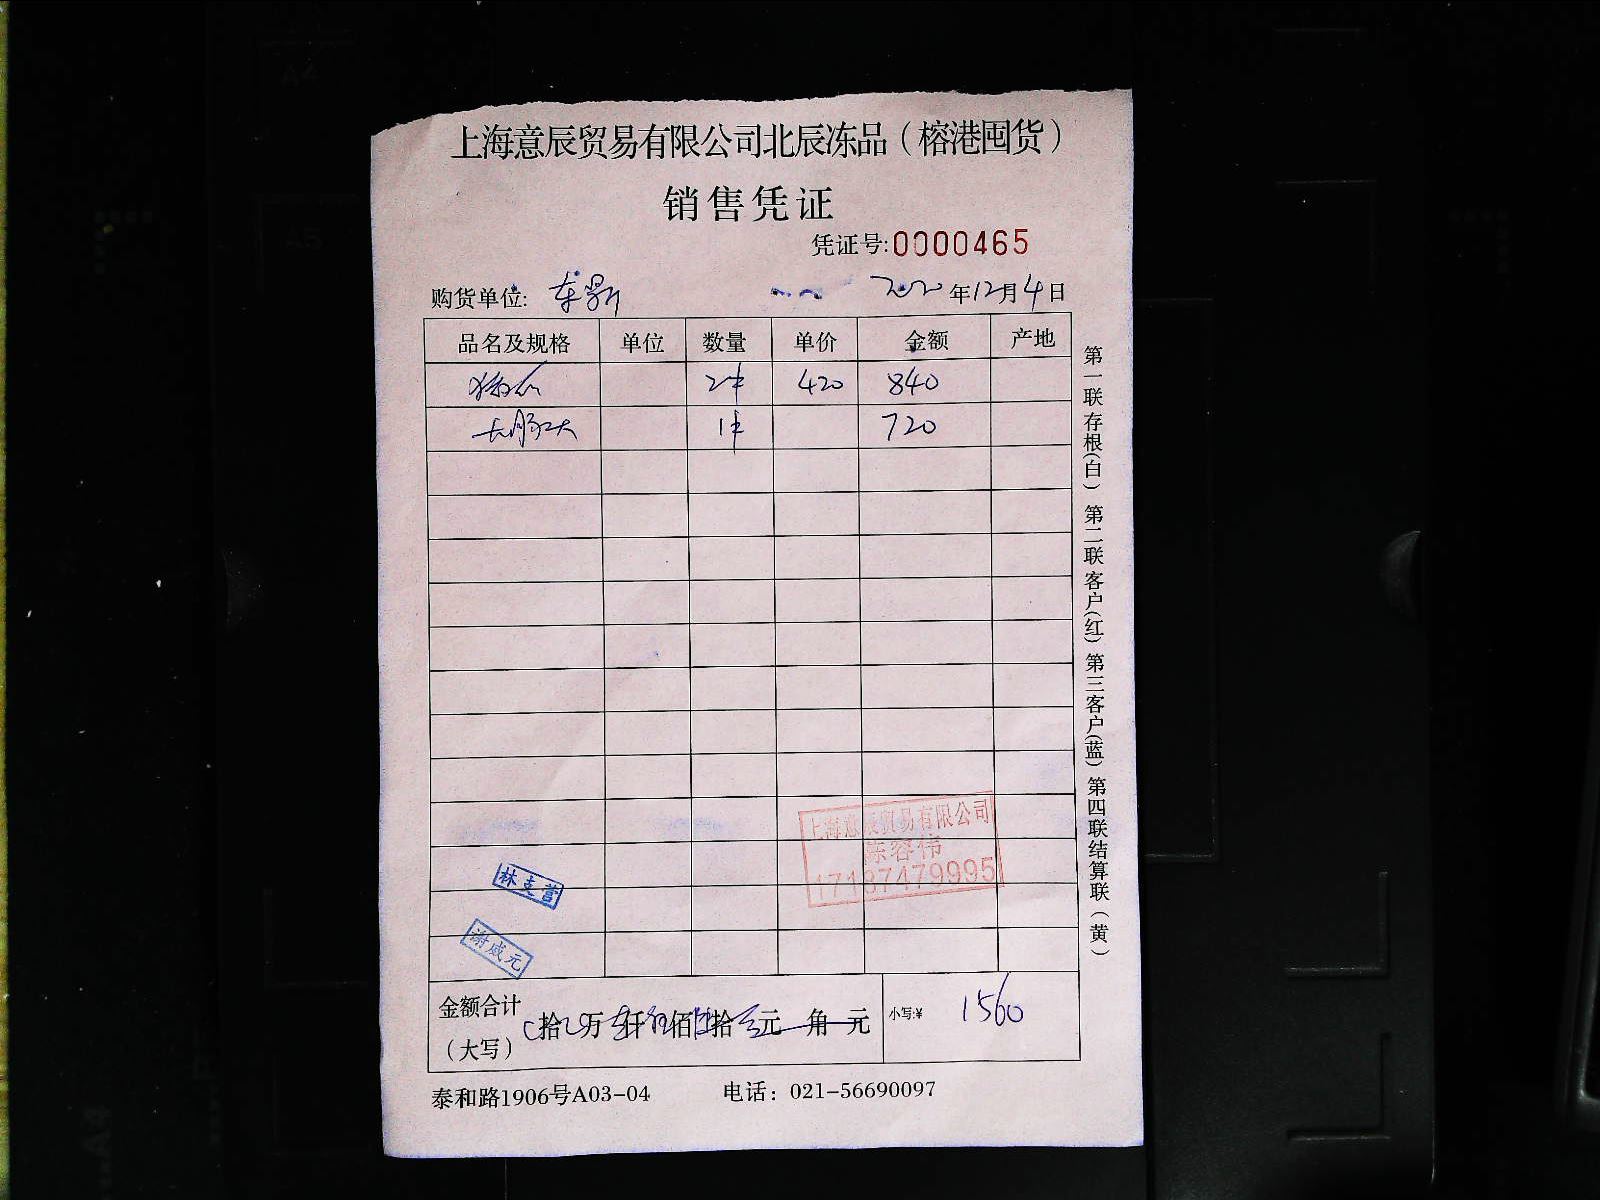 上海意辰贸易有限公司北辰冻品（榕港囤货）
销售凭证
凭证号:0000465
购货单位: 2020年12月4日
品名及规格 单位 数量 单价 金额 产地
2件 420 840
1件 720
第一联存根(白) 第二联客户(红) 第三客户(蓝) 第四联结算联(黄)
上海意辰贸易有限公司
陈容伟
17187479995
林克营
谢成元
金额合计
（大写）
拾 万 仟 佰 拾 元 角 元
小写:¥ 1560
泰和路1906号A03-04 电话：021-56690097